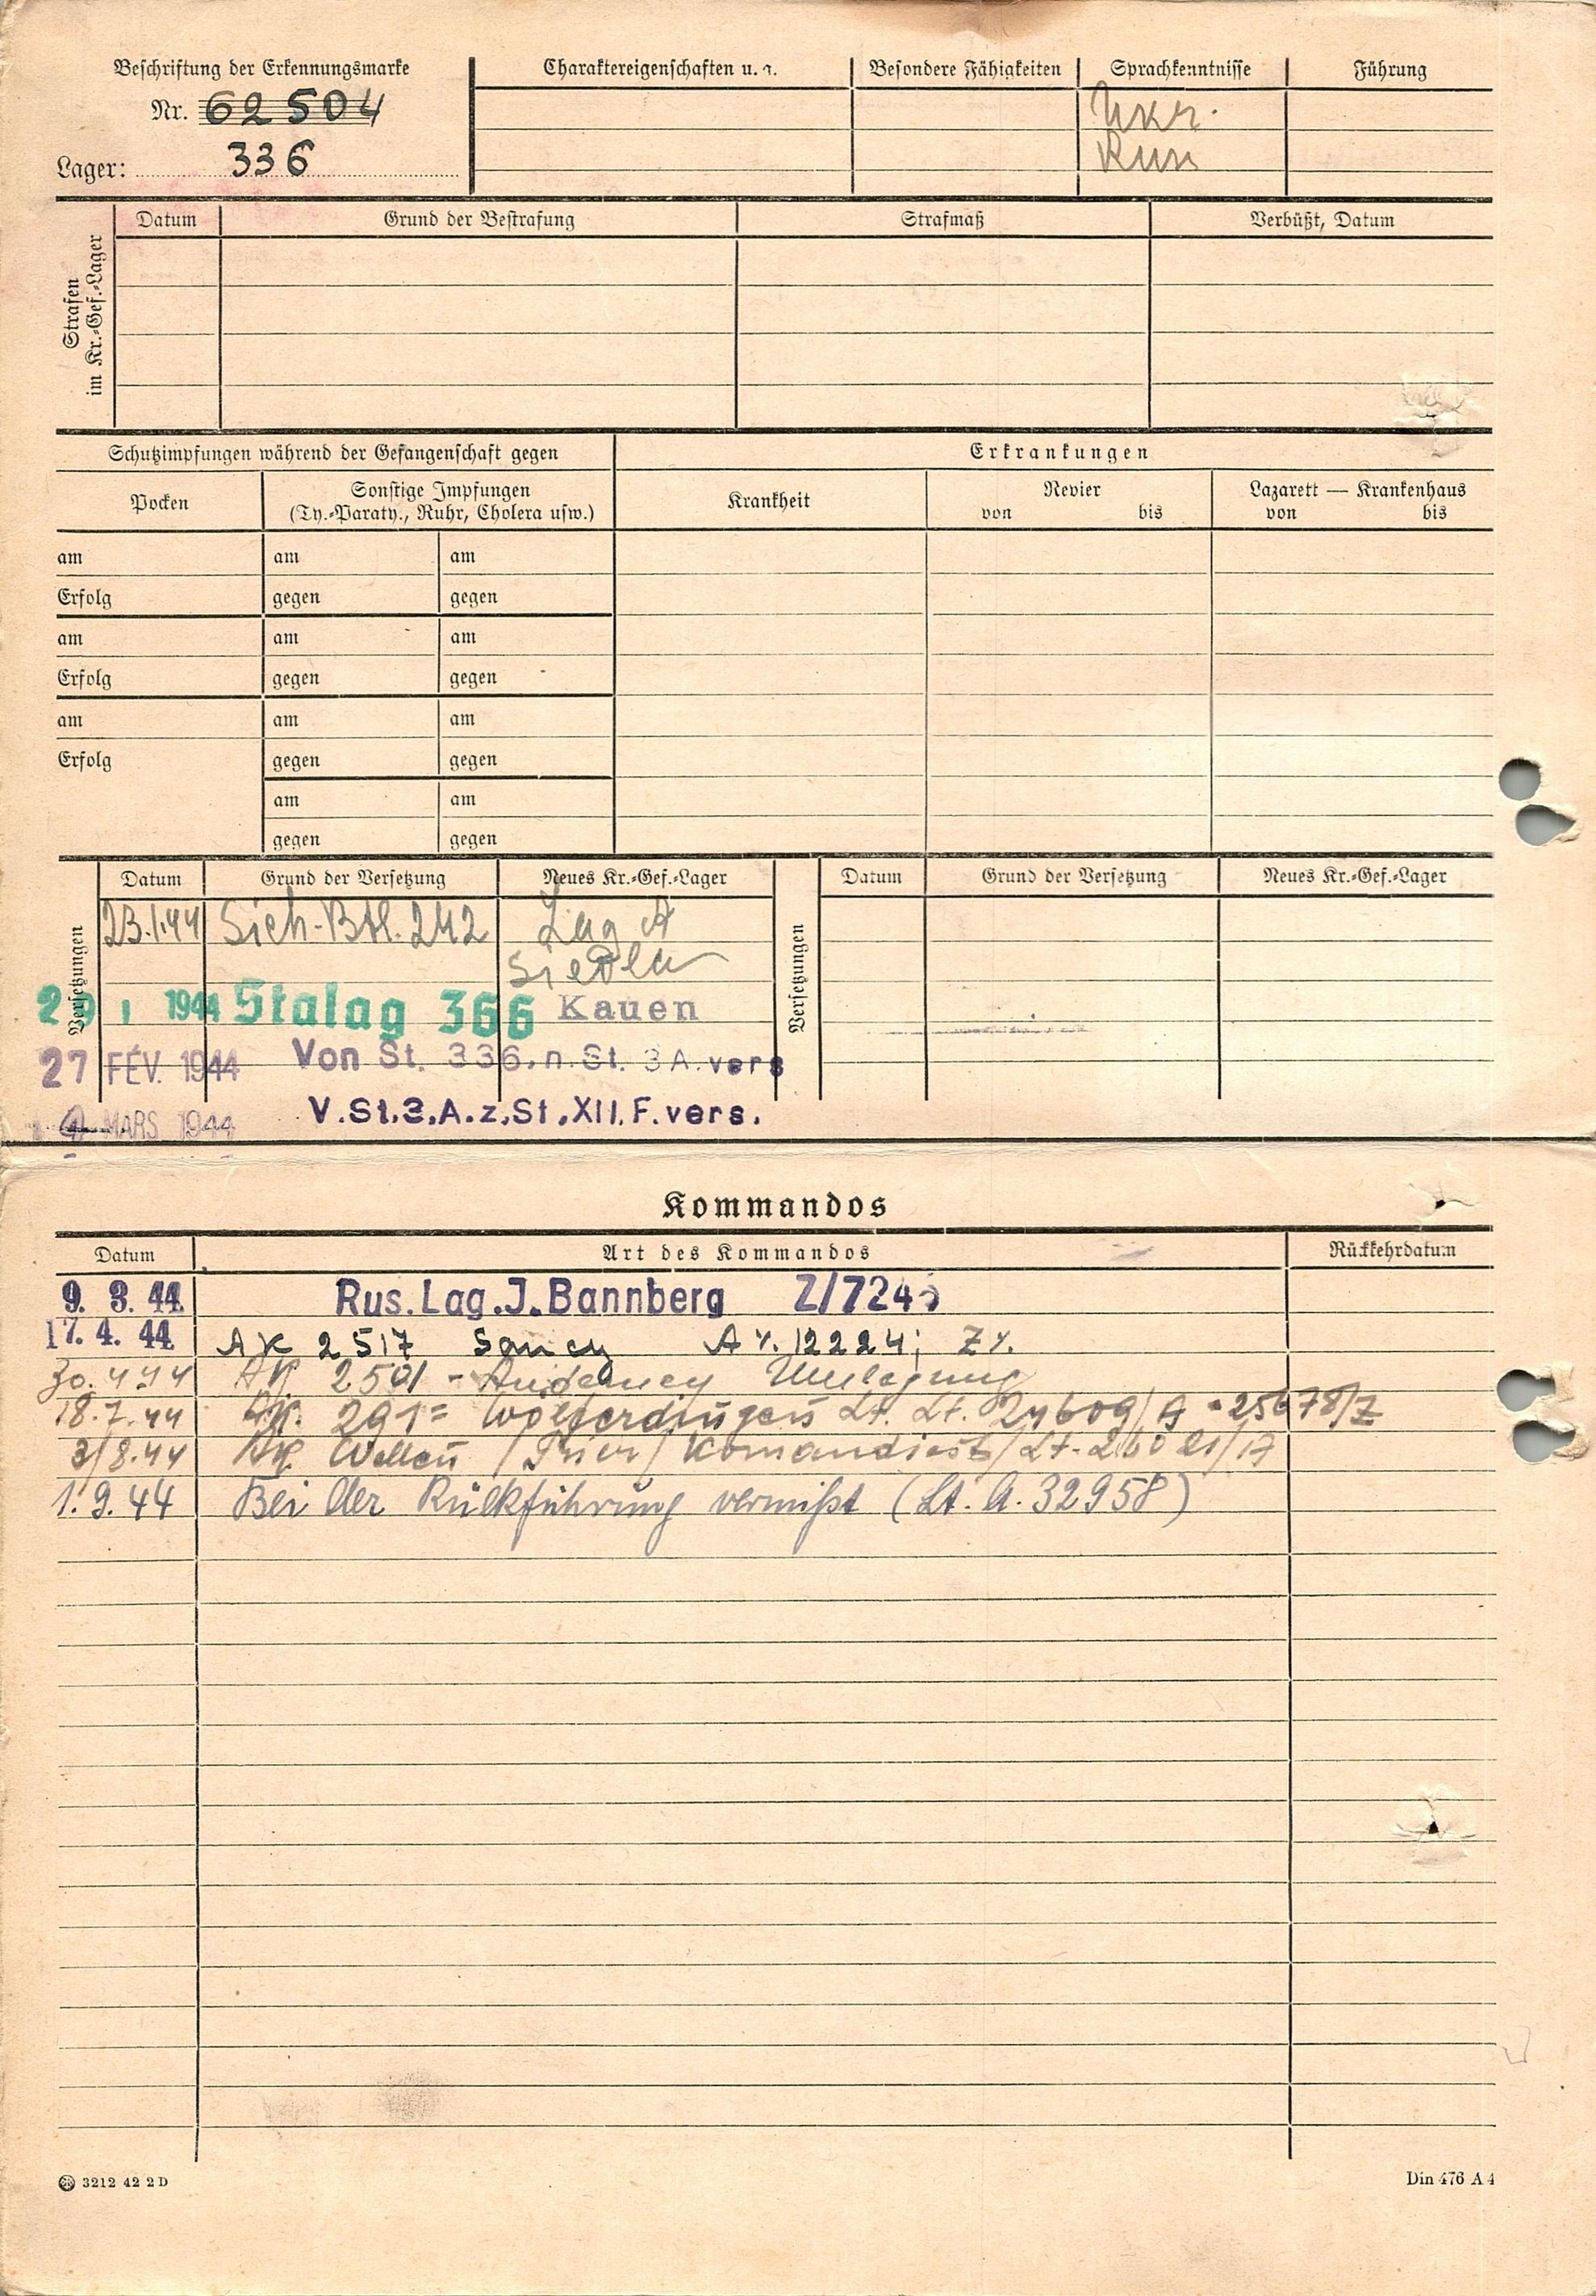 Beschriftung der Erkennungsmarke
Nr. 62504
Lager: 336
Charaktereigenschaften u. a.
Besondere Fähigkeiten
Sprachkenntnisse
Führung
Ukr.
Russ
Strafen
im Kr.-Gef.-Lager
Datum
Grund der Bestrafung
Strafmaß
Verbüßt, Datum
Schutzimpfungen während der Gefangenschaft gegen
Erkrankungen
Pocken
Sonstige Impfungen
(Ty.-Paraty., Ruhr, Cholera usw.)
Krankheit
Revier
von bis
Lazarett — Krankenhaus
von bis
am am am
Erfolg gegen gegen
am am am
Erfolg gegen gegen
am am am
Erfolg gegen gegen
am am
gegen gegen
Versetzungen
Datum Grund der Versetzung Neues Kr.-Gef.-Lager
Versetzungen
Datum Grund der Versetzung Neues Kr.-Gef.-Lager
23.1.44 Sich-Btl. 242 Lag A
Siedlce
29 1 1944 Stalag 366 Kauen
27 FÉV. 1944 Von St. 336. n. St. 3 A. vers
MARS 1944 V. St. 3. A. z. St. XII. F. vers.
Kommandos
Datum Art des Kommandos Rückkehrdatum
9. 3. 44 Rus. Lag. J. Bannberg
17. 4. 44 AK 2517 Sancy A %. 12224; Z %.
30. 4 44 AK 2501 - Umlegung
18. 7. 44 AK. 291 = Wölferdingen Lt. Lt. 24609/A 25678/Z
3/8.44 AK. Wellen /Trier/
1. 9. 44 Bei der Rückführung vermißt (Lt. A. 32958)
3212 42 2 D
Din 476 A 4